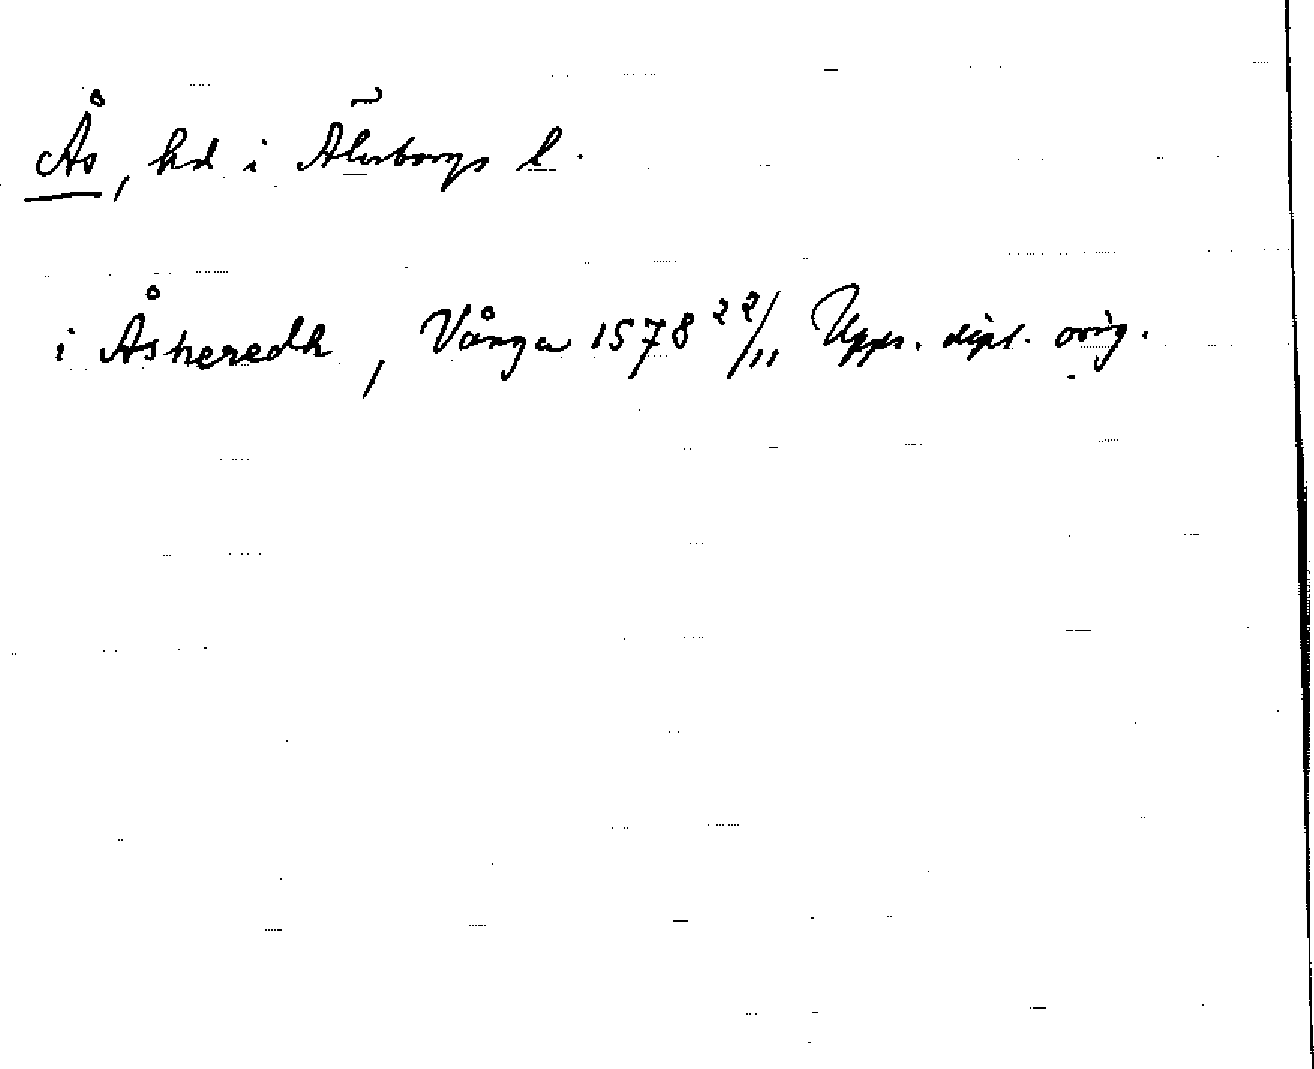 Ås, hd i Älvsborgs l.
i Åsheredh, Vånga 1578 22/11 Upps. dipl. orig.